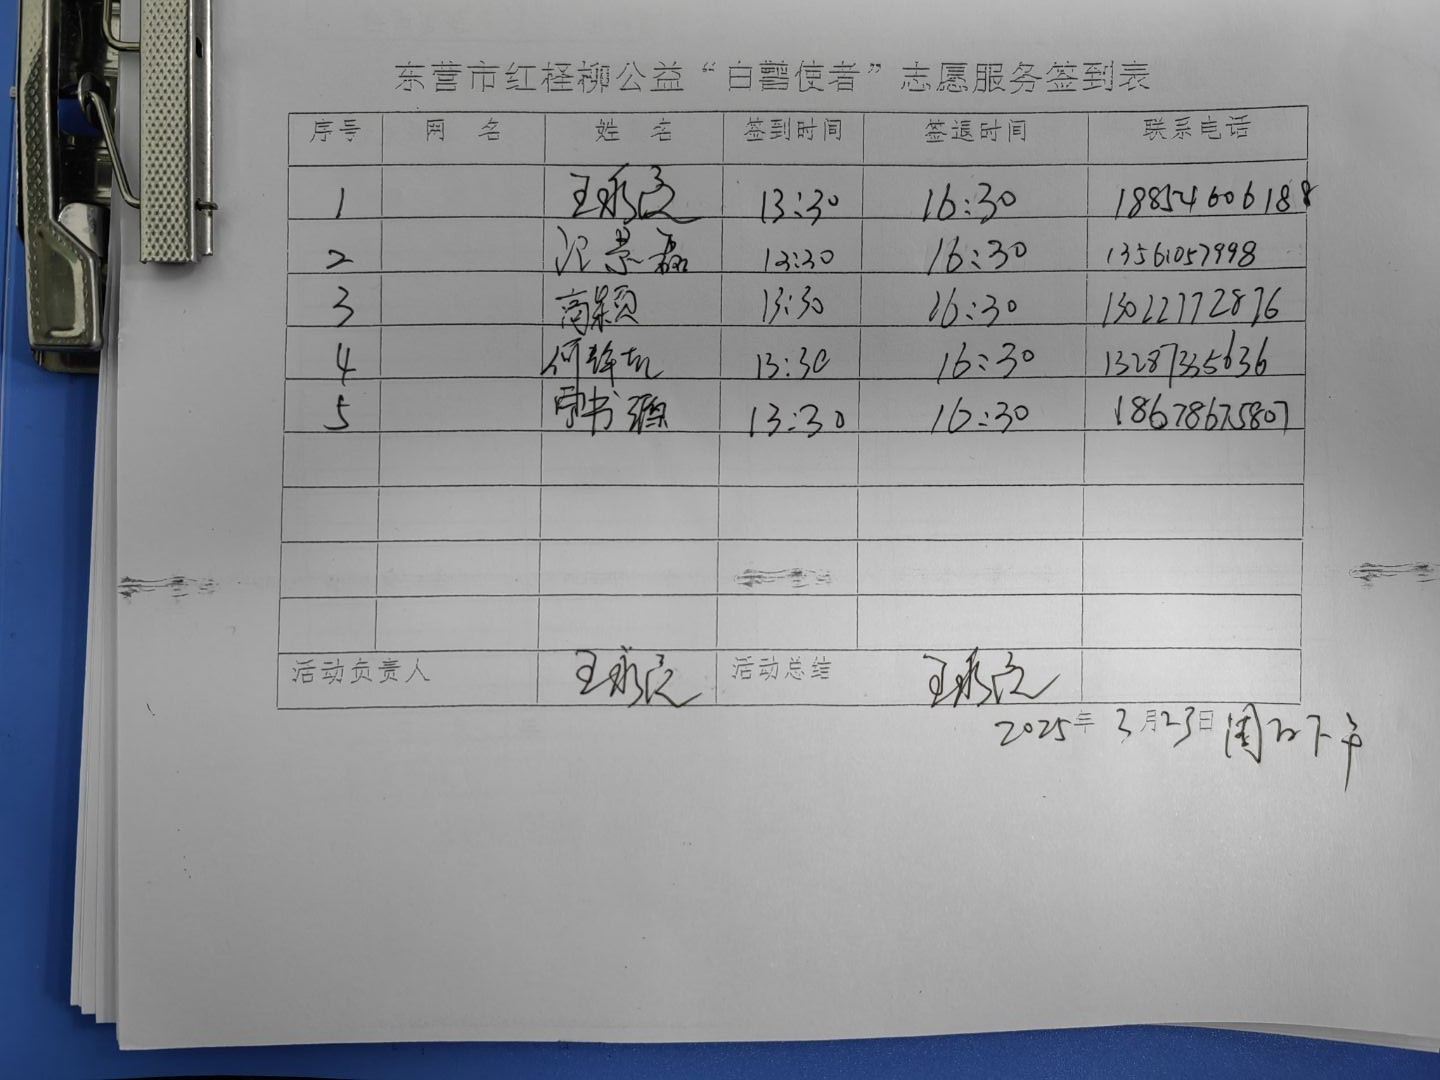 东营市红柽柳公益“白鹳使者”志愿服务签到表
序号 网 名 姓 名 签到时间 签退时间 联系电话
1 王永 13:30 16:30 18854606188
2 13:30 16:30 13561057998
3 高颖 13:30 16:30 13022772876
4 何 13:30 16:30 13287335636
5 书 13:30 16:30 18678675807
活动负责人 王永 活动总结 王永
2025年 3月23日 周日下午